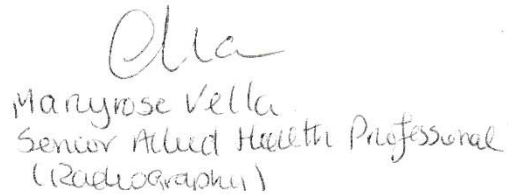 Maryrose Vella
Senior Allied Health Professional
(Radiography)